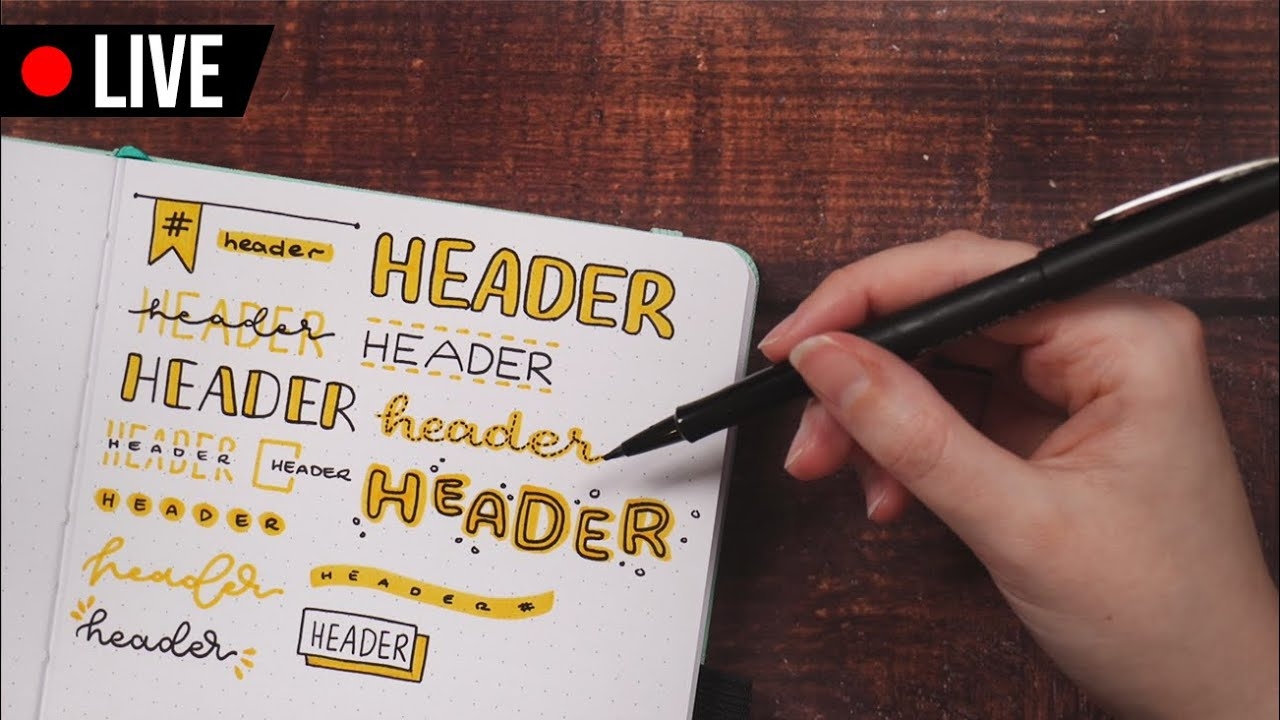 LIVE
#
header
HEADER
HEADER
header
HEADER
HEADER
header
HEADER
HEADER
HEADER
HEADER
HEADER
header
HEADER #
header
HEADER